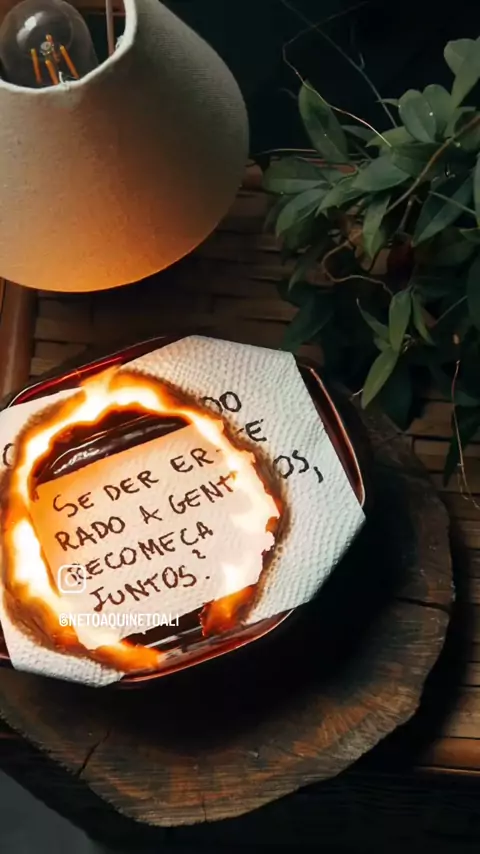 DO
E
OS,
SE DER ER-
RADO A GENT
RECOMEÇA
JUNTOS?
@NETOAQUINETOALI